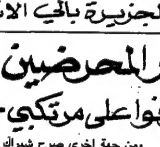 لجزيرة بالحي الا
والمحرضين
نوا على مرتكبي
ومن جهة اخرى صرح شيراك